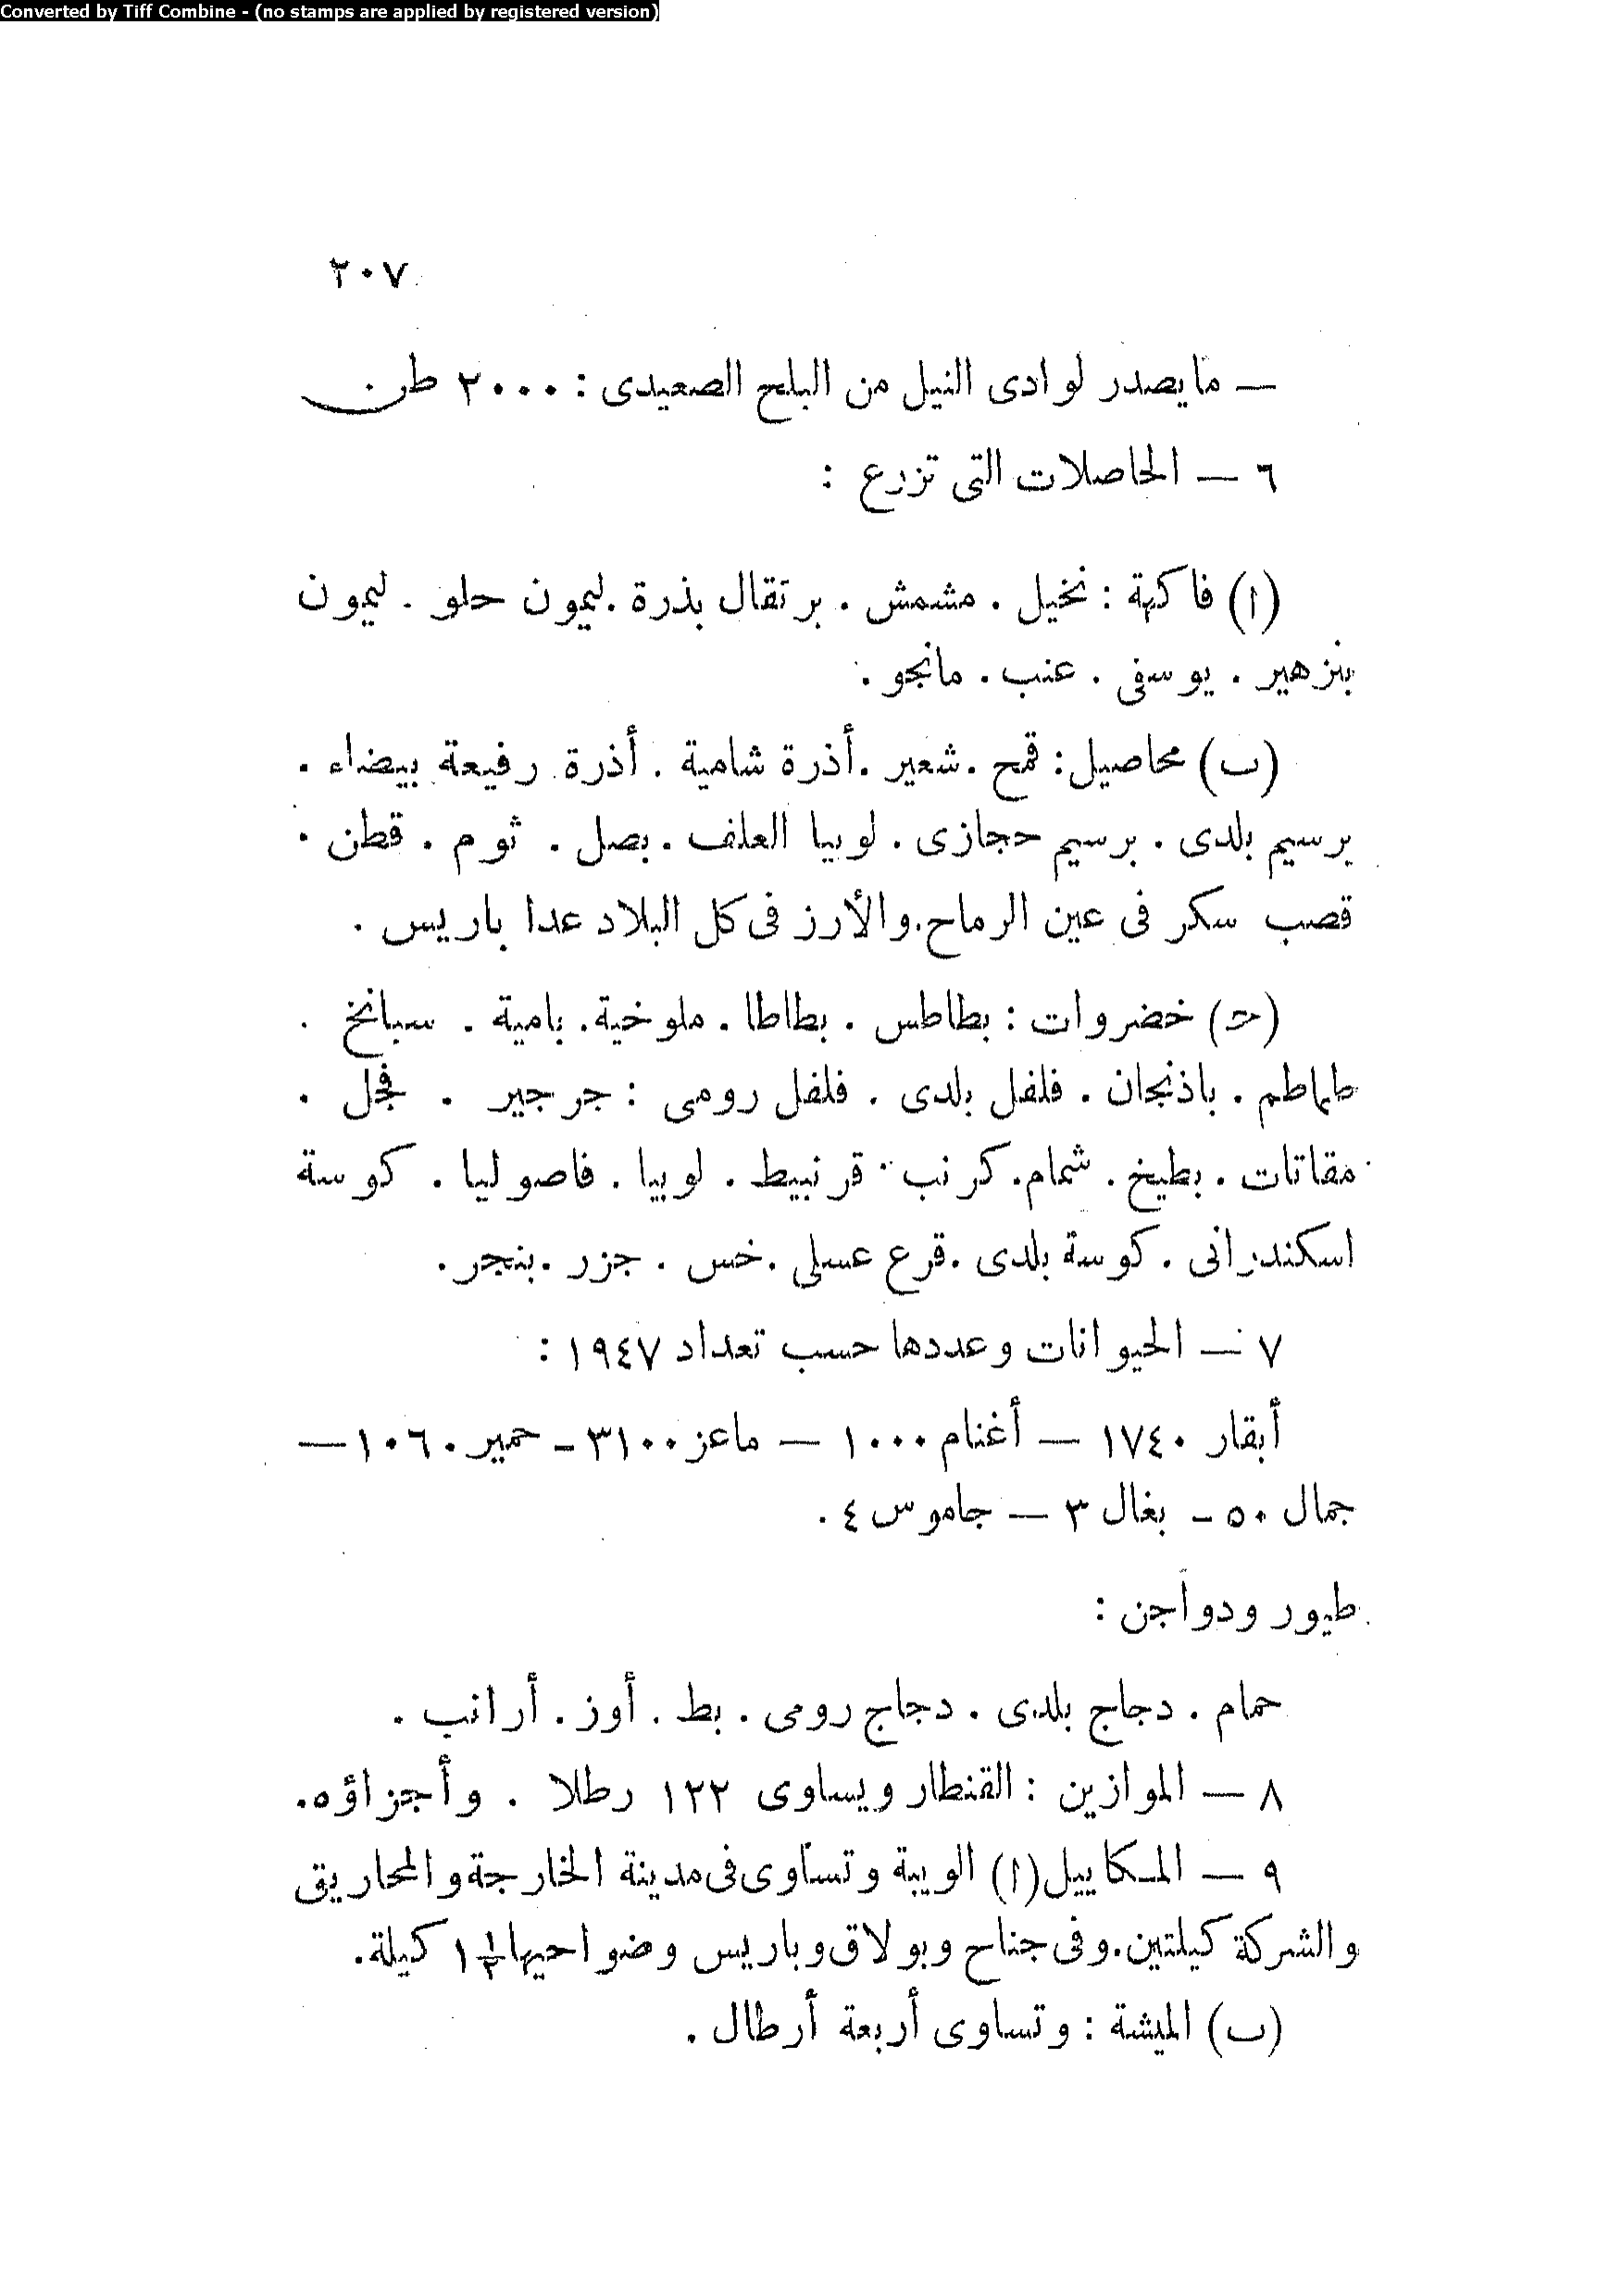 Converted by Tiff Combine - (no stamps are applied by registered version)
٢٠٧
— ما يصدر لوادى النيل من البلح الصعيدى : ٢٠٠٠ طن
٦ — الحاصلات التى تزرع :
(ا) فاكهة : نخيل . مشمش . برتقال بذرة . ليمون حلو . ليمون
بنزهير . يوسفى . عنب . مانجو .
(ب) محاصيل : قمح . شعير . أذرة شامية . أذرة رفيعة بيضاء .
برسيم بلدى . برسيم حجازى . لوبيا العلف . بصل . ثوم . قطن .
قصب سكر فى عين الرماح . والأرز فى كل البلاد عدا باريس .
(ح) خضروات : بطاطس . بطاطا . ملوخية . بامية . سبانخ .
طماطم . باذنجان . فلفل بلدى . فلفل رومى : جرجير . فجل .
مقاتات . بطيخ . شمام . كرنب . قرنبيط . لوبيا . فاصوليا . كوسة
اسكندرانى . كوسة بلدى . قرع عسلى . خس . جزر . بنجر .
٧ — الحيوانات وعددها حسب تعداد ١٩٤٧ :
أبقار ١٧٤٠ — أغنام ١٠٠٠ — ماعز ٣١٠٠ — حمير ١٠٦٠ —
جمال ٥٠ — بغال ٣ — جاموس ٤ .
طيور ودواجن :
حمام . دجاج بلدى . دجاج رومى . بط . أوز . أرانب .
٨ — الموازين : القنطار ويساوى ١٢٢ رطلا . وأجزاؤه .
٩ — المكاييل (ا) الويبة وتساوى فى مدينة الخارجة والمحاريق
والشركة كيلتين . وفى جناح وبولاق وباريس وضواحيها ١½ كيلة .
(ب) الميشة : وتساوى أربعة أرطال .